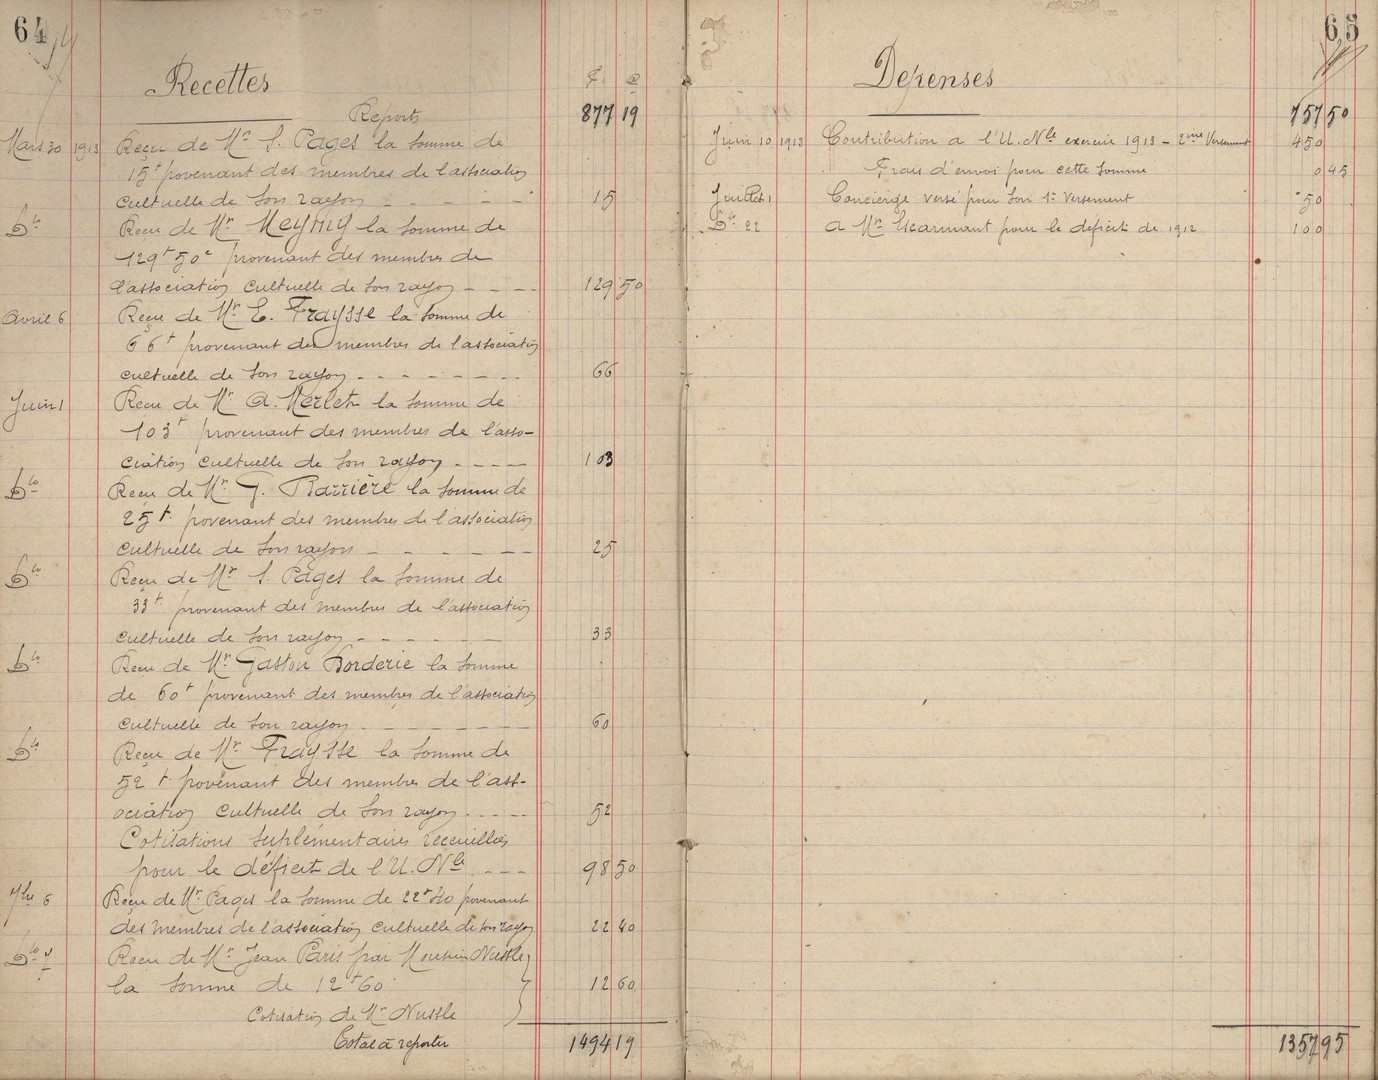 64
Recettes
F. C
Report 877 19
Mars 30 1913 Reçu de Mr S. Pages la somme de
15f provenant des membres de l'association
cultuelle de son rayon - - - - - 15
Dto Reçu de Mr Meymy la somme de
129f 50c provenant des membres de
l'association cultuelle de son rayon - - - - 129 50
Avril 6 Reçu de Mr E. Fraysse la somme de
66f provenant des membres de l'association
cultuelle de son rayon - - - - - - - - 66
Juin 1 Reçu de Mr A. Merlet la somme de
103f provenant des membres de l'asso-
ciation cultuelle de son rayon - - - - - 103
Dto Reçu de Mr G. Barrière la somme de
25f provenant des membres de l'association
cultuelle de son rayon - - - - - - - 25
Dto Reçu de Mr S. Pages la somme de
33f provenant des membres de l'association
cultuelle de son rayon - - - - - - 33
Dto Reçu de Mr Gaston Borderie la somme
de 60f provenant des membres de l'association
cultuelle de son rayon - - - - - - - - 60
Dto Reçu de Mr Fraysse la somme de
52f provenant des membres de l'ass-
ociation cultuelle de son rayon - - - - - 52
Cotisations suplémentaires recueillies
pour le déficit de l'U. Nle - - - 98 50
7bre 6 Reçu de Mr Pages la somme de 22f 40 provenant
des membres de l'association cultuelle de son rayon 22 40
Dto 7 Reçu de Mr Jean Paris par Nussle
la somme de 12f 60 12 60
Cotisation de Mr Nussle
Total à reporter 1494 19
65
Depenses
757 50
Juin 10 1913 Contribution a l'U. Nle exercice 1913 - 2me Versement 450
Frais d'envoi pour cette somme 0 45
Juillet 1 Concierge versé pour son 1r versement 50
Dto 22 A Mr Escarmant pour le déficit de 1912 100
1357 95